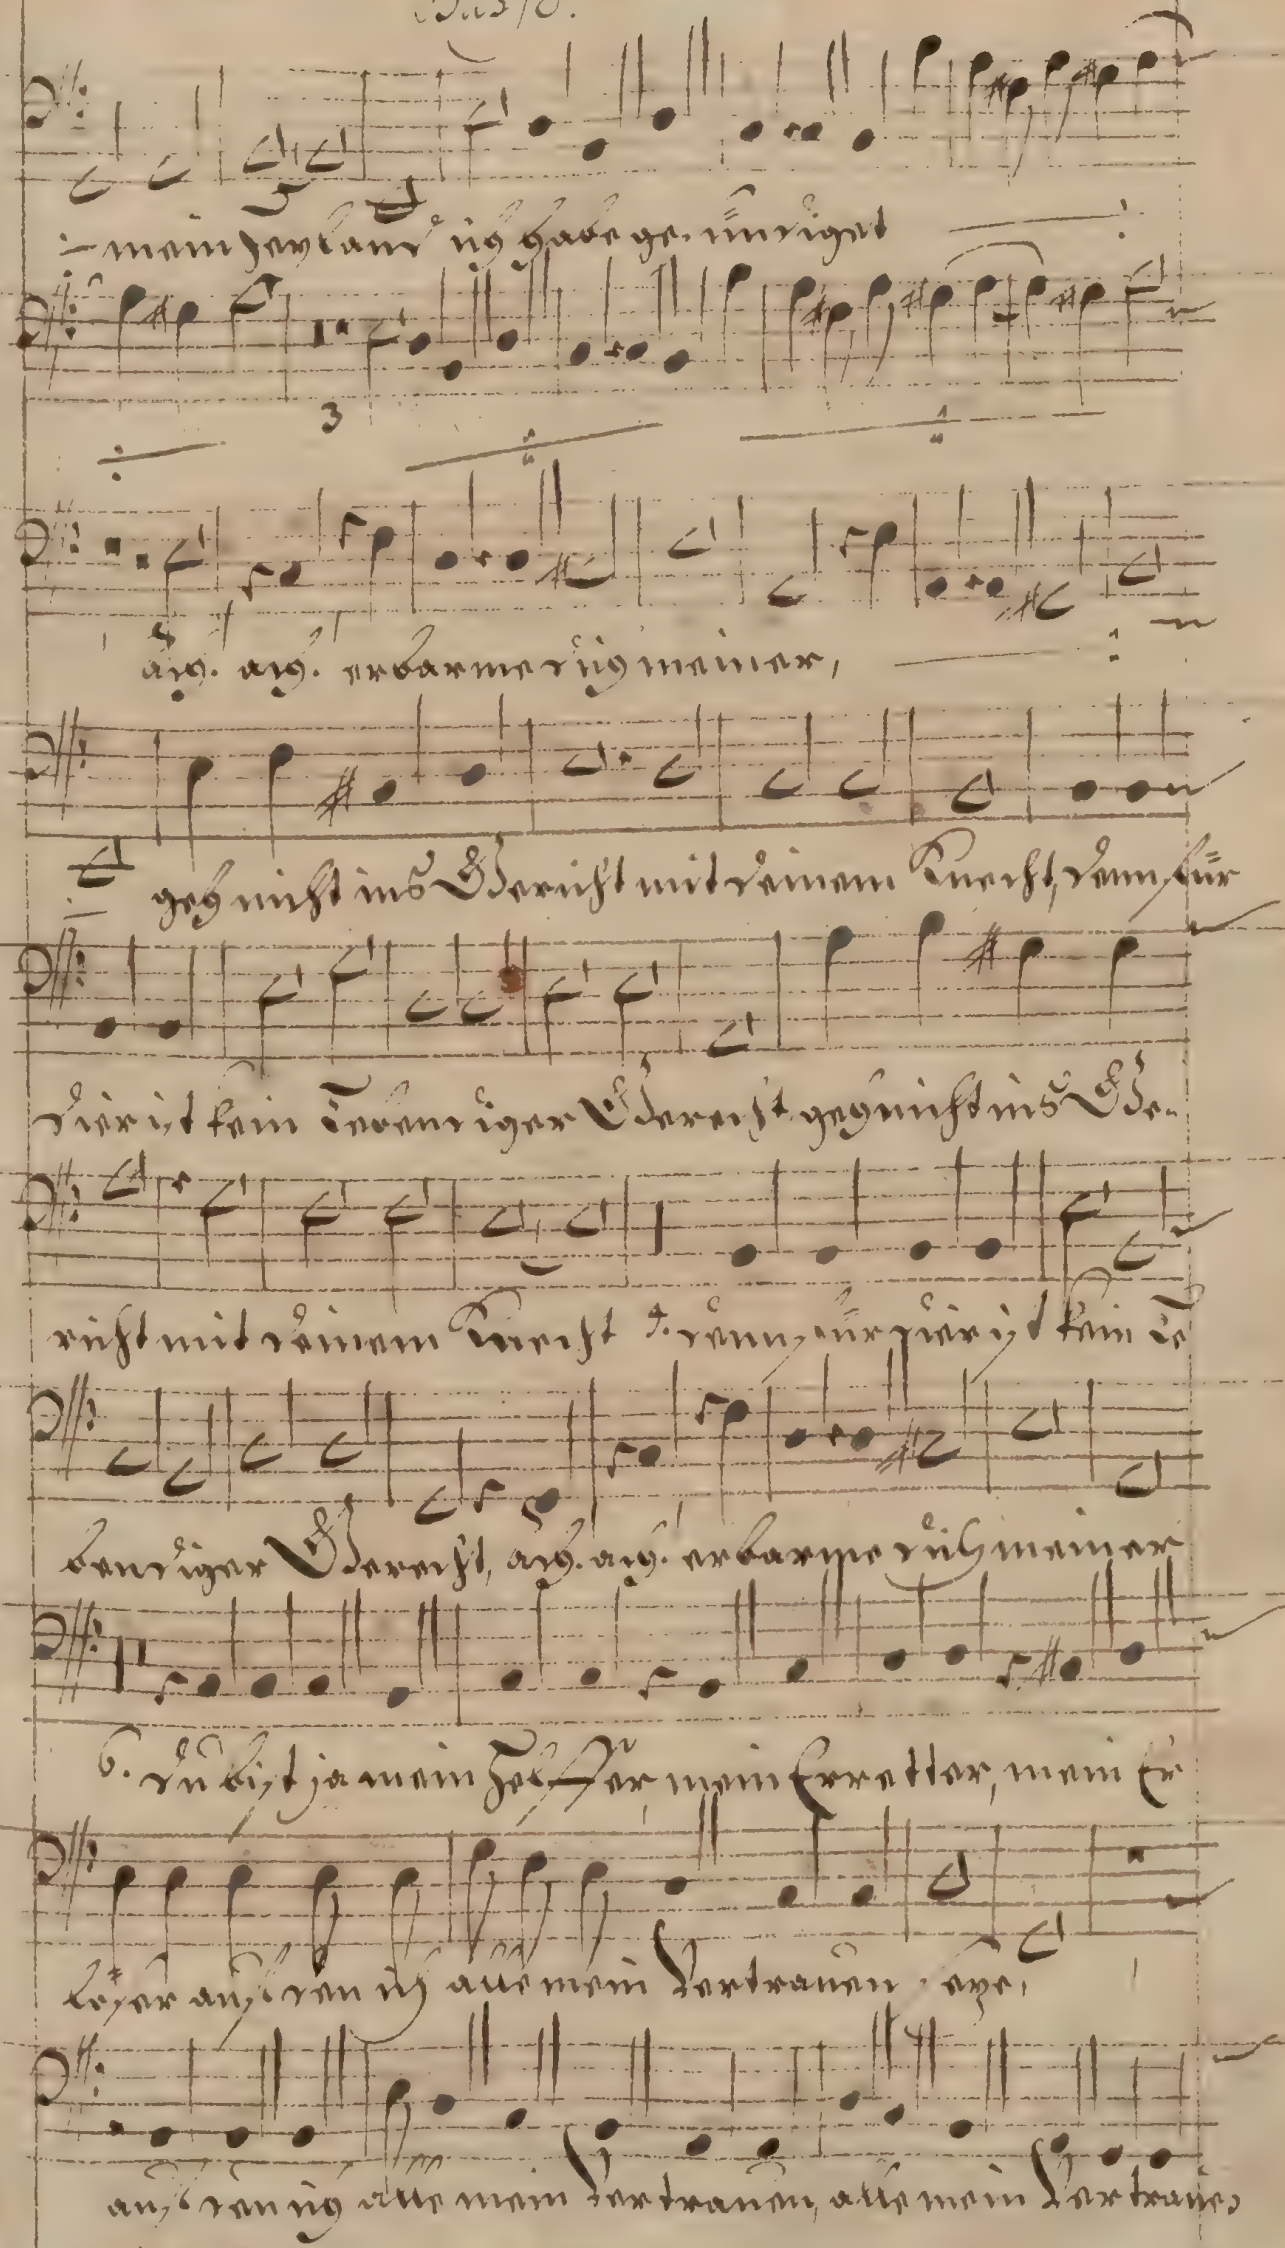 Basso.
mein Heyland ich habe gesündiget
3
ach. ach. erbarme dich meiner,
geh nicht ins Gericht mit deinem Knecht, denn für
dier ist kein Lebendiger Gerecht geh nicht ins Ge-
richt mit deinem Knecht denn für dier ist kein Le
bendiger Gerecht, ach. ach. erbarme dich meiner
6. du bist ja mein Helffer, mein Erretter, mein Er
löser auf den ich alle mein Vertrauen seze,
auf den ich alle mein Vertrauen, alle mein Vertrauen